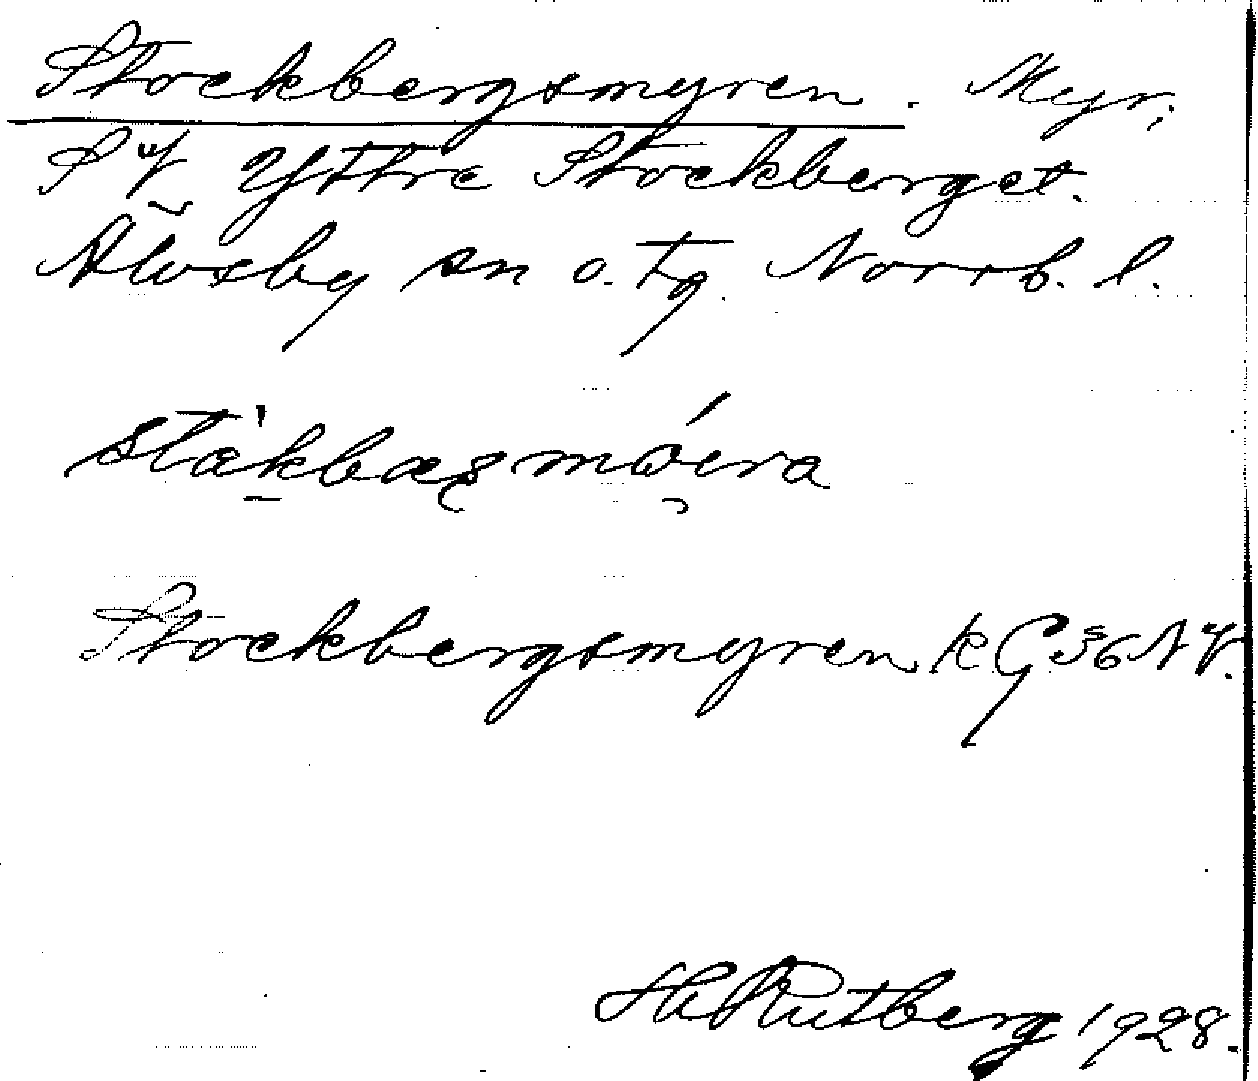 Stockbergsmyren. Myr;
S V Yttre Stockberget.
Älvsby sn o. tg. Norrb. l.
Stockbergsmyren k G 36 NV.
H. Rutberg 1928.